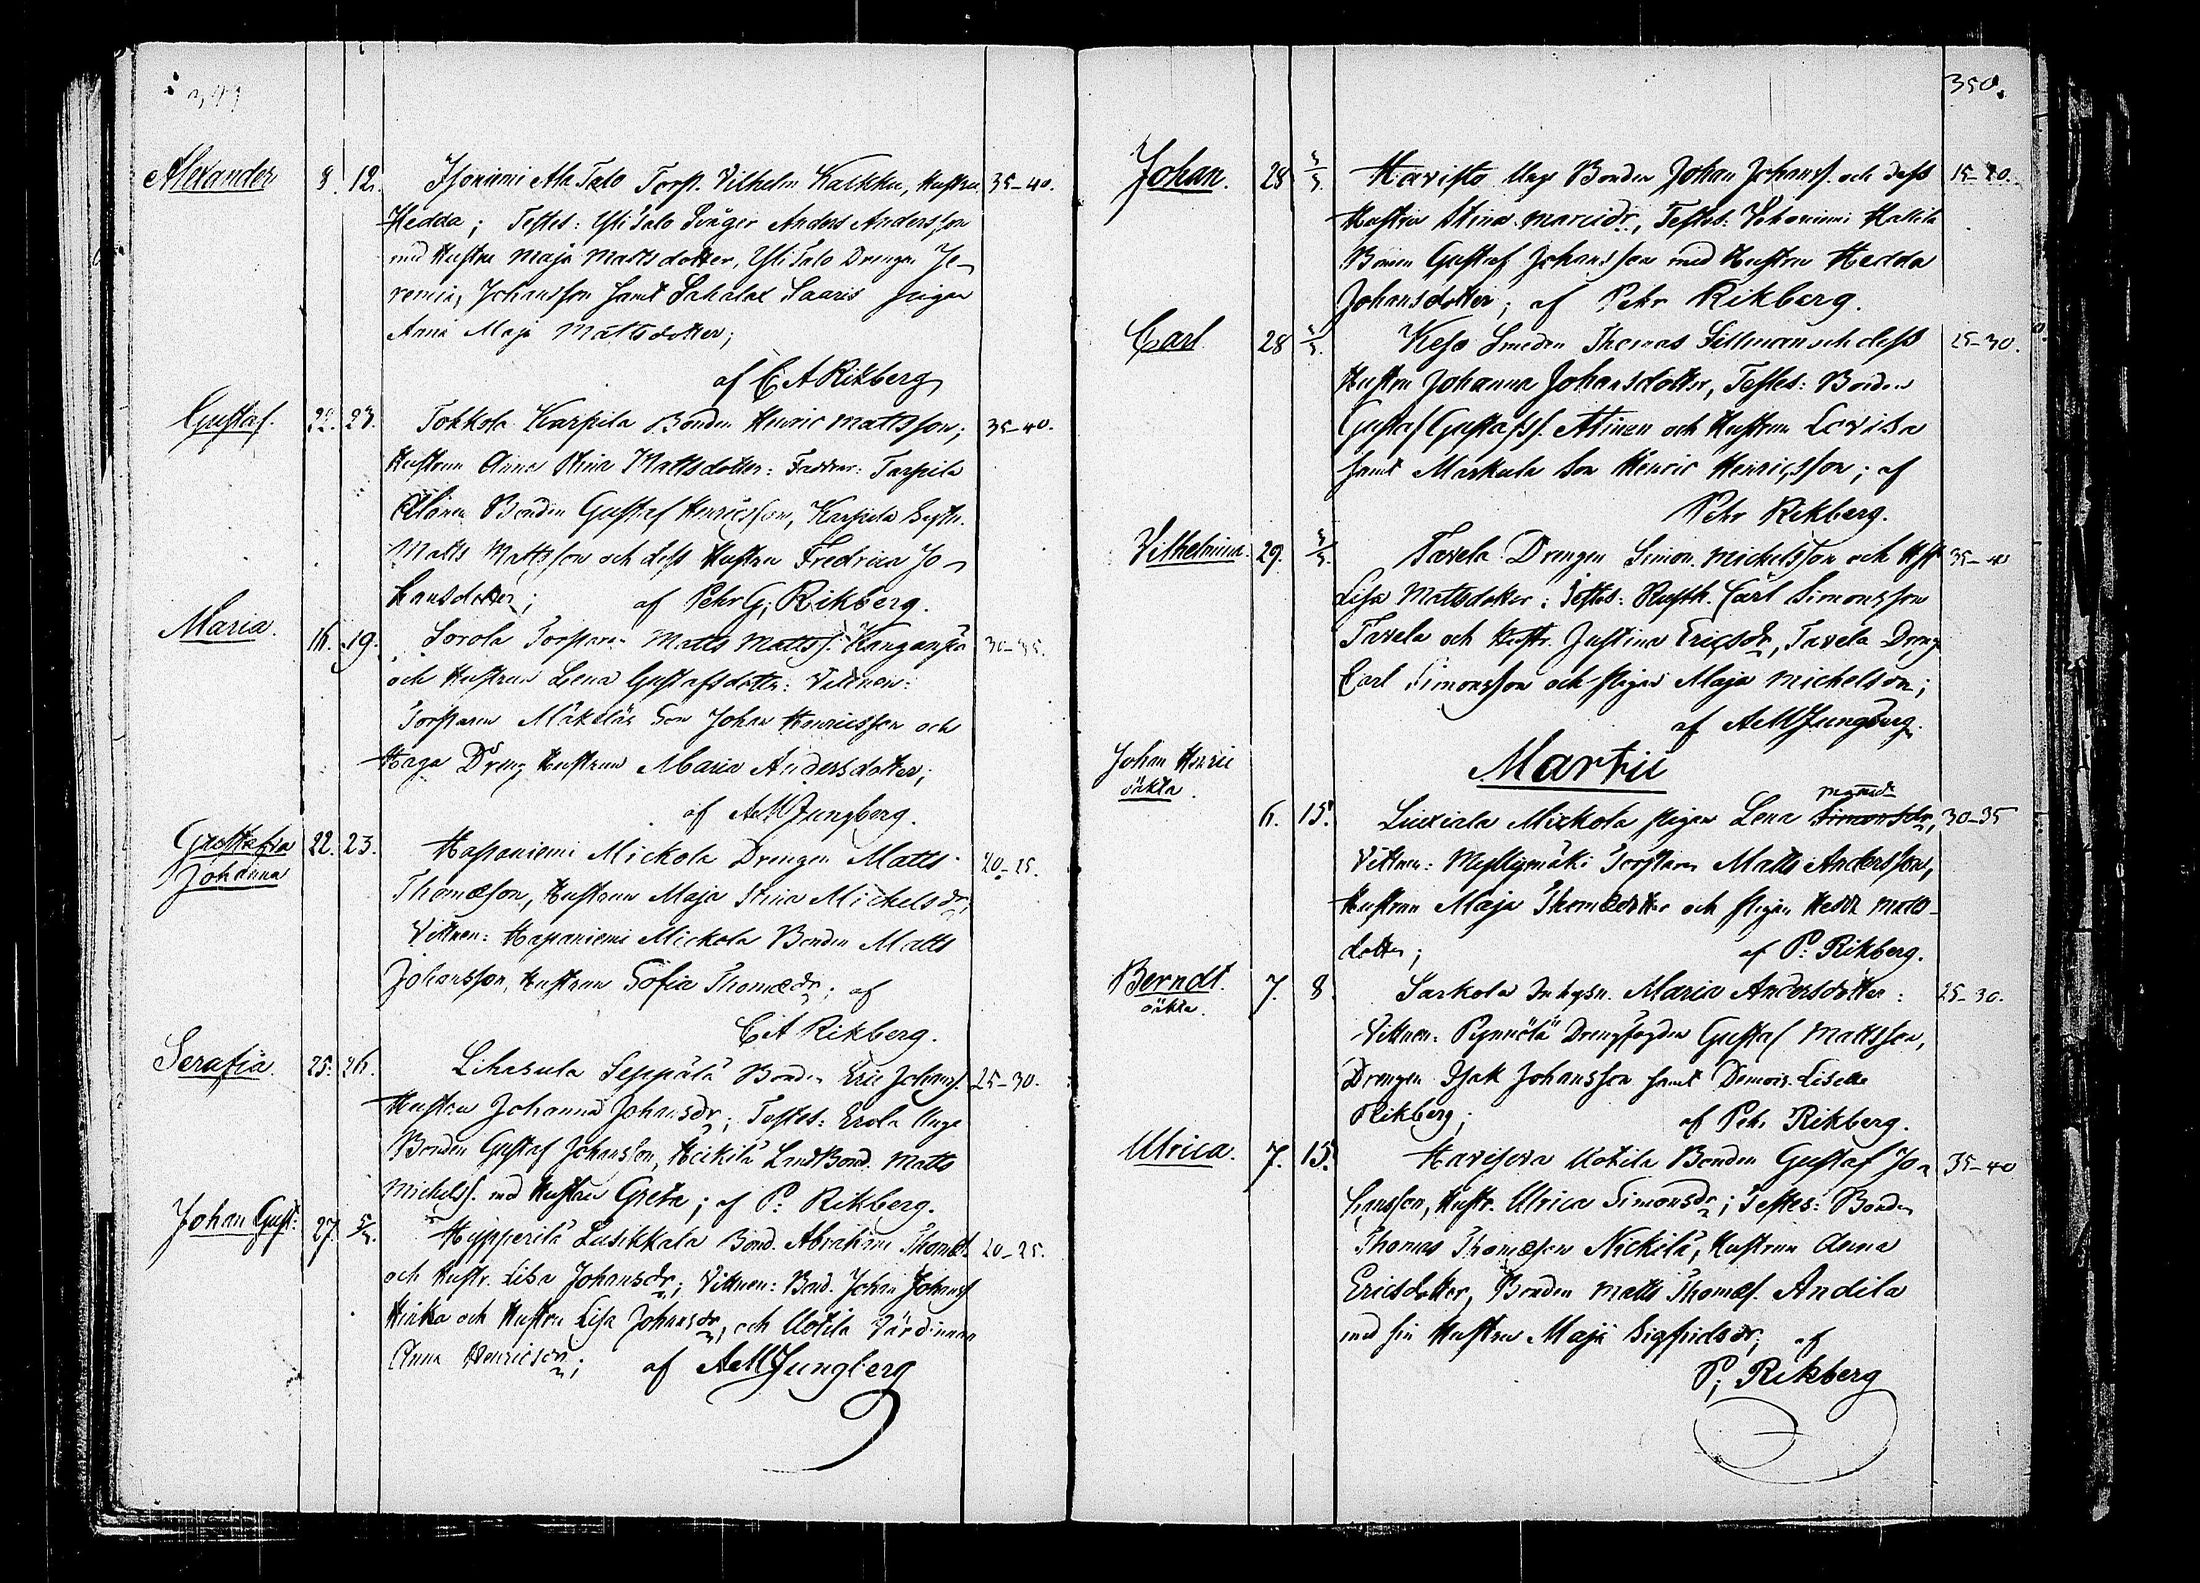 349
Alexander 8. 12. Isoniemi Ali Talo Torp. Vilhelm Kalkku, Hustru 35-40.
Hedda; Testes: Yli Talo Svåger Anders Andersson
med Hustru Maja Mattsdotter, Yli Talo Drengen Je-
remias Johansson samt Sahalax Saaris Pigan
Anna Maja Mattsdotter;
af C A Rikberg
Gustaf. 22. 23. Tokkola Karpila Bonden Henric Mattsson; 35-40.
Hustrun Anna Stina Mattsdotter: Faddrar: Tarpila
Bonden Gustaf Henricsson, Karpila
Matts Mattsson och dess Hustru Fredrica Jo-
hansdotter; af Pehr G. Rikberg.
Maria. 16. 19. Sorola Torparen Matts Mattss. Kanganpä 30-35.
och Hustrun Lena Gustafsdotter: Vittnen:
Torparen Mäkeläs Son Johan Henricsson och
Haga Dreng Hustrun Maria Andersdotter;
af AMLjungberg.
Gustafva Johanna 22. 23. Hapaniemi Mickola Drengen Matts 20-25.
Thomæson, Hustrun Maja Stina Michelsdr;
Vittnen: Hapaniemi Mickola Bonden Matts
Johansson, Hustrun Sofia Thomædr; af
C A Rikberg.
Serafia. 25. 26. Lihasula Seppälä Bonden Eric Johanss. 25-30.
Hustru Johanna Johansdr; Testes: Erola Unge
Bonden Gustaf Johansson, Heikilä LandBond. Matts
Michelss. med Hustru Greta; af P. Rikberg.
Johan Gust: 27. 5/3. Hypperilä Lusikkala Bond. Abraham Thomæs. 20-25.
och Hustr. Lisa Johansdr; Vittnen: Bond. Johan Johanss
och Hustru Lisa Johansdr, och Uotila Värdinnan
Anna Henricsdr; af AMLjungberg
350.
Johan. 28 5/3 Havisto Ung Bonden Johan Johanss. och dess 15-20.
Hustru Stina Marcidr, Testes: Hallila
Bonden Gustaf Johansson med Hustru Hedda
Johansdotter; af Pehr Rikberg.
Carl 28 5/3. Keso Smeden Thomas Sillman och dess 25-30.
Hustru Johanna Johansdotter, Testes: Bonden
Gustaf Gustafss. Atinen och Hustrun Lovisa
samt Markula Son Henric Henricsson; af
Pehr Rikberg.
Vilhelmina. 29. 5/3. Tavela Drengen Simon Michelsson och Hstr 35-40
Lisa Mattsdotter: Testes: Rusth. Carl Simonsson
Tavela och Hustr. Justina Ericsdr, Tavela Dreng
Carl Simonsson och Pigan Maja Michelsdr;
af AMLjungberg.
Martii
Johan Henric oäkta. 6. 15. Liuxiala Mickola Pigan Lena Simonsdr, 30-35
Vittnen: Myllymäki Torparen Matts Andersson,
Hustrun Maja Thomædotter och Pigan Hedda Matts-
dotter; af P: Rikberg.
Berndt. oäkta. 7. 8. Sarkola Inhysn. Maria Andersdotter: 25-30.
Vittnen: Pynnölä Drengfogden Gustaf Mattsson,
Drengen Isak Johansson samt Demois. Lisette
Rikberg; af Pehr Rikberg.
Ulrica. 7. 15. Uotila Bonden Gustaf Jo- 35-40
hansson, Hustr. Ulrica Simonsdr; Testes: Bonden
Thomas Thomæson Nickilä, Hustrun Anna
Ericsdotter, Bonden Matts Thomæs. Andila
med sin Hustru Maja Sigfridsdr; af
P; Rikberg